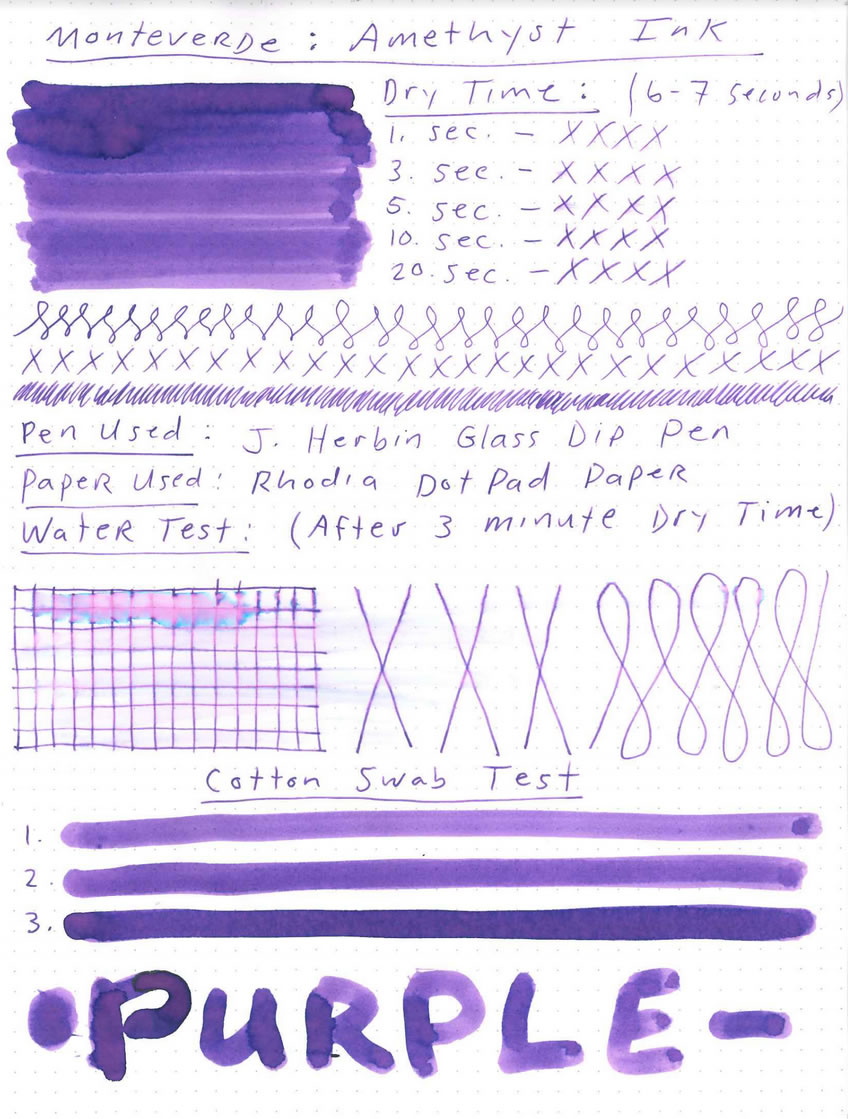 Monteverde: Amethyst Ink
Dry Time: (6-7 seconds)
1. sec. - XXXX
3. sec. - XXXX
5. sec. - XXXX
10. sec. - XXXX
20. sec. - XXXX
X X X X X X X X X X X X X X X X X X X X X X X X X X X
Pen Used: J. Herbin Glass Dip Pen
Paper Used: Rhodia Dot Pad Paper
Water Test: (After 3 minute Dry Time)
X X X
Cotton Swab Test
1.
2.
3.
•PURPLE-